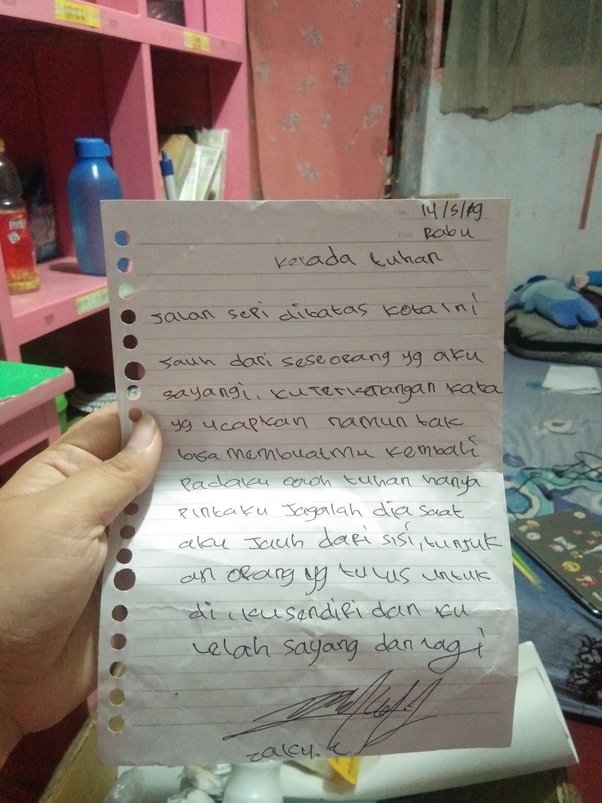 14/5/19
Rabu
Kepada tuhan
Jalan sepi dibatas kota ini
Jauh dari seseorang yg aku
sayangi. kuterkenangan kata
yg ucapkan namun tak
bisa membuatmu kembali
Padaku oooh tuhan hanya
pintaku Jagalah dia saat
aku Jauh dari sisi, tunjuk
an orang yg tulus untuk
di, ku sendiri dan ku
lelah sayang dan lagi
zaky. k